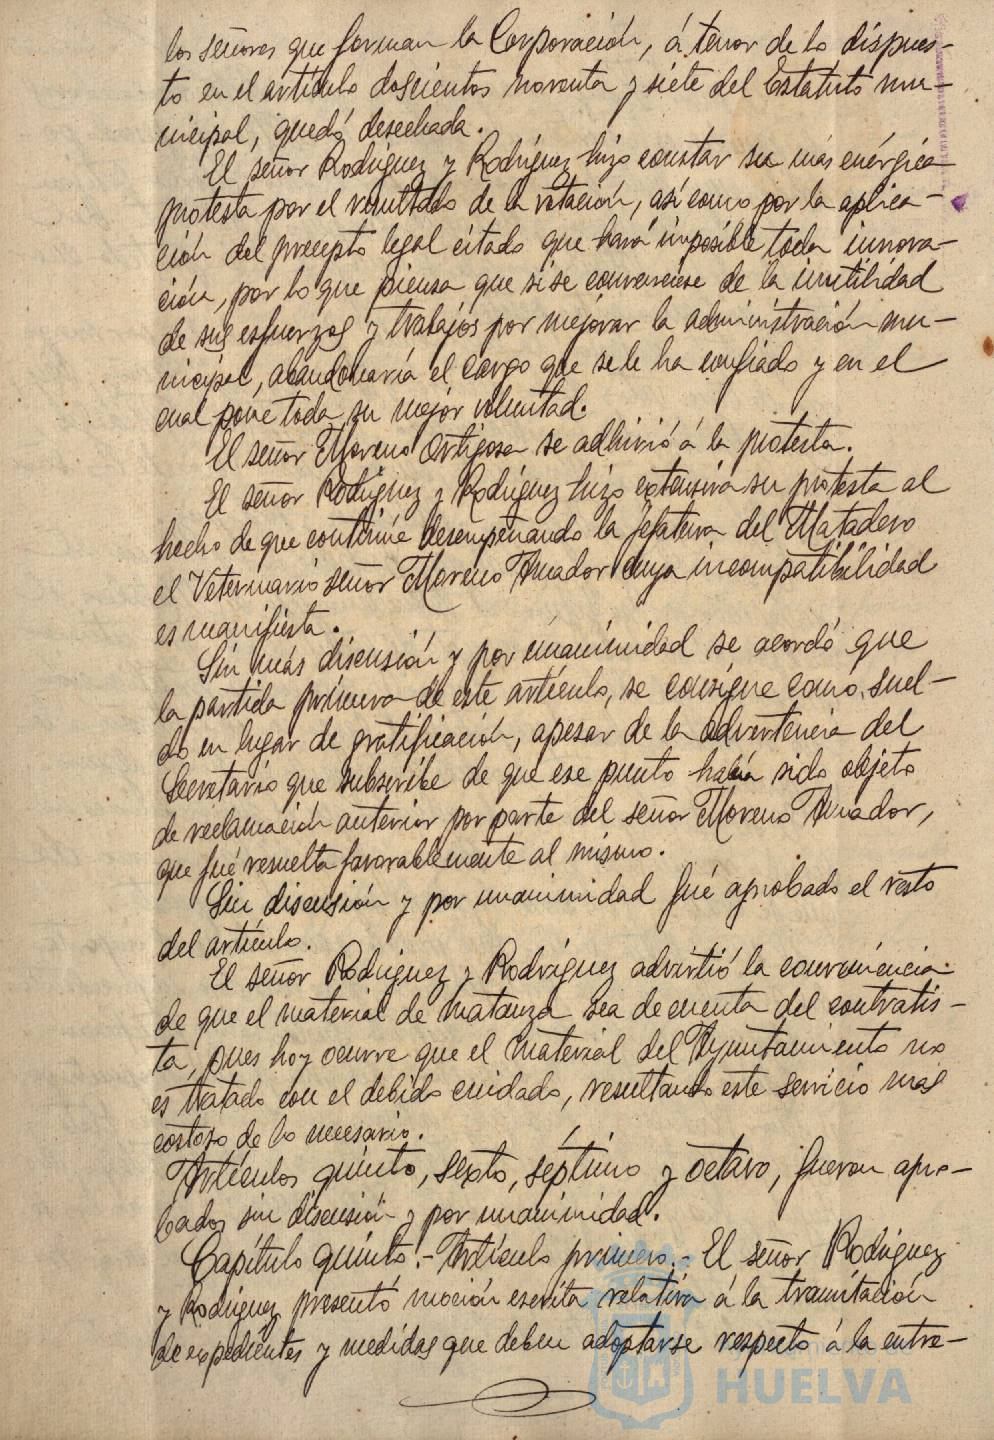 los señores que forman la Corporación, á tenor de lo dispues-
to en el artículo doscientos noventa y siete del Estatuto mu-
nicipal, quedó desechada.
El señor Rodríguez y Rodríguez hizo constar su más enérgica
protesta por el resultado de la votación, así como por la aplica-
ción del precepto legal citado que hará imposible toda innova-
ción, por lo que piensa que si se convenciese de la inutilidad
de sus esfuerzos y trabajos por mejorar la administración mu-
nicipal, abandonaría el cargo que se le ha confiado y en el
cual pone toda su mejor voluntad.
El señor Moreno Ortigosa se adhirió á la protesta.
El señor Rodríguez y Rodríguez hizo extensiva su protesta al
hecho de que continúe desempeñando la jefatura del Matadero
el Veterinario señor Moreno Amador cuya incompatibilidad
es manifiesta.
Sin más discusión y por unanimidad se acordó que
la partida primera de este artículo, se consigne como suel-
do en lugar de gratificación, apesar de la advertencia del
Secretario que subscribe de que ese punto había sido objeto
de reclamación anterior por parte del señor Moreno Amador,
que fué resuelta favorablemente al mismo.
Sin discusión y por unanimidad fué aprobado el resto
del artículo.
El señor Rodríguez y Rodríguez advirtió la conveniencia
de que el material de matanza sea de cuenta del contratis-
ta, pues hoy ocurre que el material del Ayuntamiento no
es tratado con el debido cuidado, resultando este servicio mas
costoso de lo necesario.
Artículos quinto, sexto, séptimo y octavo, fueron apro-
bados sin discusión y por unanimidad.
Capítulo quinto.- Artículo primero.- El señor Rodríguez
y Rodríguez presentó moción escrita relativa á la tramitación
de expedientes y medidas que deben adoptarse respecto á la entre-
HUELVA